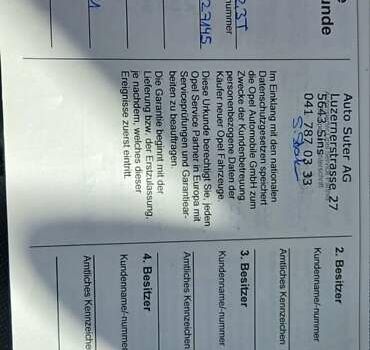 unde
nummer
Auto Suter AG
Luzernerstrasse 27
5643 Sins
041 787 03 33
Im Einklang mit den nationalen
Datenschutzgesetzen speichert
die Opel Automobile GmbH zum
Zwecke der Kundenbetreuung
personenbezogene Daten der
Käufer neuer Opel Fahrzeuge.
Diese Urkunde berechtigt Sie, jeden
Opel Service Partner in Europa mit
Serviceprüfungen und Garantiear-
beiten zu beauftragen.
Die Garantie beginnt mit der
Lieferung bzw. der Erstzulassung,
je nachdem, welches dieser
Ereignisse zuerst eintritt.
2. Besitzer
Kundenname/-nummer
Amtliches Kennzeichen
3. Besitzer
Kundenname/-nummer
Amtliches Kennzeichen
4. Besitzer
Kundenname/-nummer
Amtliches Kennzeichen